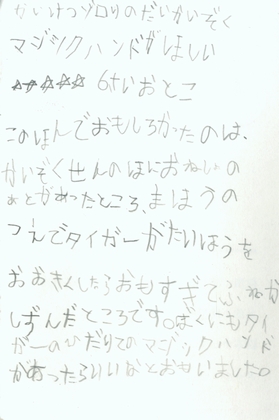 かいけつゾロリのだいかいぞく
マジックハンドがほしい
☆☆☆☆☆ 6さいおとこ
このほんでおもしろかったのは、
かいぞくせんのほにおねしょの
あとがあったところ、まほうの
つえでタイガーがたいほうを
おおきくしたらおもすぎてふねが
しずんだところです。ぼくにもタイ
ガーのひだりてのマジックハンド
があったらいいなとおもいました。